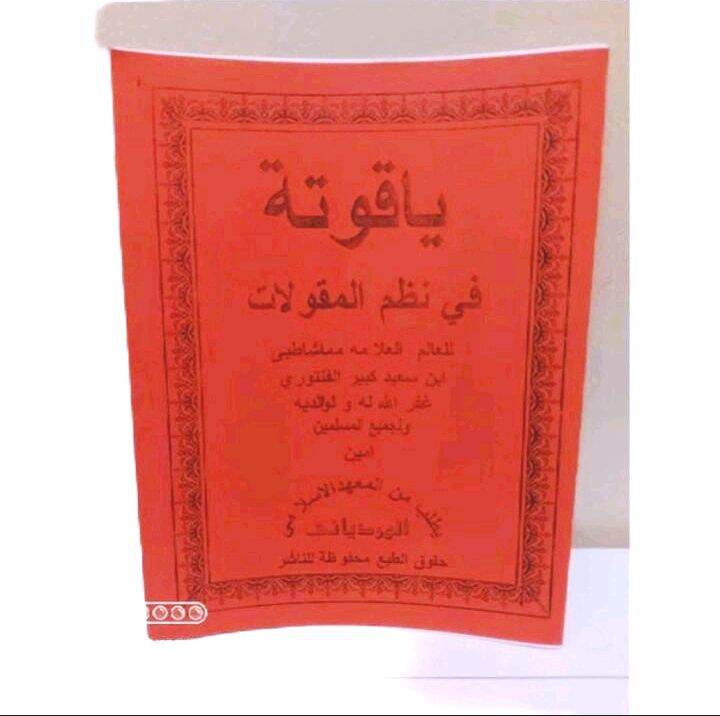 ياقوتة
في نظم المقولات
للعالم العلامه مماشاطبى
ابن سعيد كبير الفنتوري
غفر الله له ولوالديه
ولجميع لمسلمين
امين
يطلب من المعهد الاسلامي
حقوق الطبع محفوظة للناشر